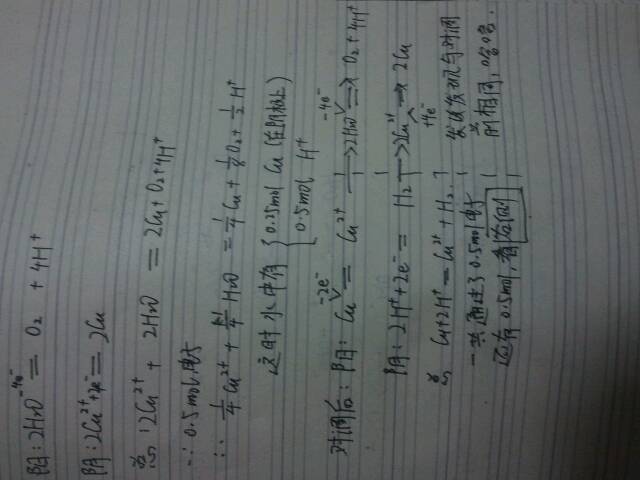 阳:2H₂O -4e⁻ = O₂ + 4H⁺
阴:2Cu²⁺ +4e⁻ = 2Cu
总:2Cu²⁺ + 2H₂O = 2Cu+O₂+4H⁺
∵ 0.5mol电子
∴ 1/4 Cu²⁺ + H₂O = 1/4 Cu + 1/8 O₂ + 1/2 H⁺
这时水中有 { 0.25mol Cu (在阴极上)
0.5mol H⁺
对调后:阳:Cu -2e⁻ = Cu²⁺ → 2H₂O -4e⁻ → O₂+4H⁺
阴:2H⁺+2e⁻ = H₂ → 2Cu²⁺ +4e⁻ → 2Cu
总 Cu+2H⁺ = Cu²⁺+H₂
一共通过了0.5mol电子
还有0.5mol,看右面
应该发现与对调
前相同,哈哈.